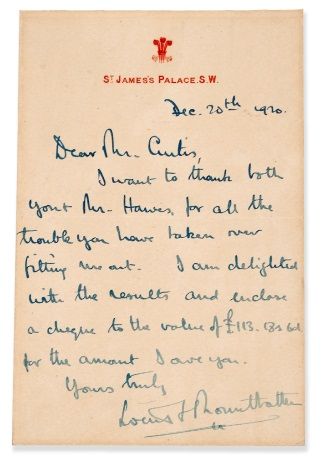 ST JAMES'S PALACE. S.W.
Dec. 20th 1920.
Dear Mr. Curtis,
I want to thank both
you & Mr. Hawes, for all the
trouble you have taken over
fitting me out. I am delighted
with the results and enclose
a cheque to the value of £113. 13s 6d
for the amount I owe you.
Yours truly
Louis Mountbatten